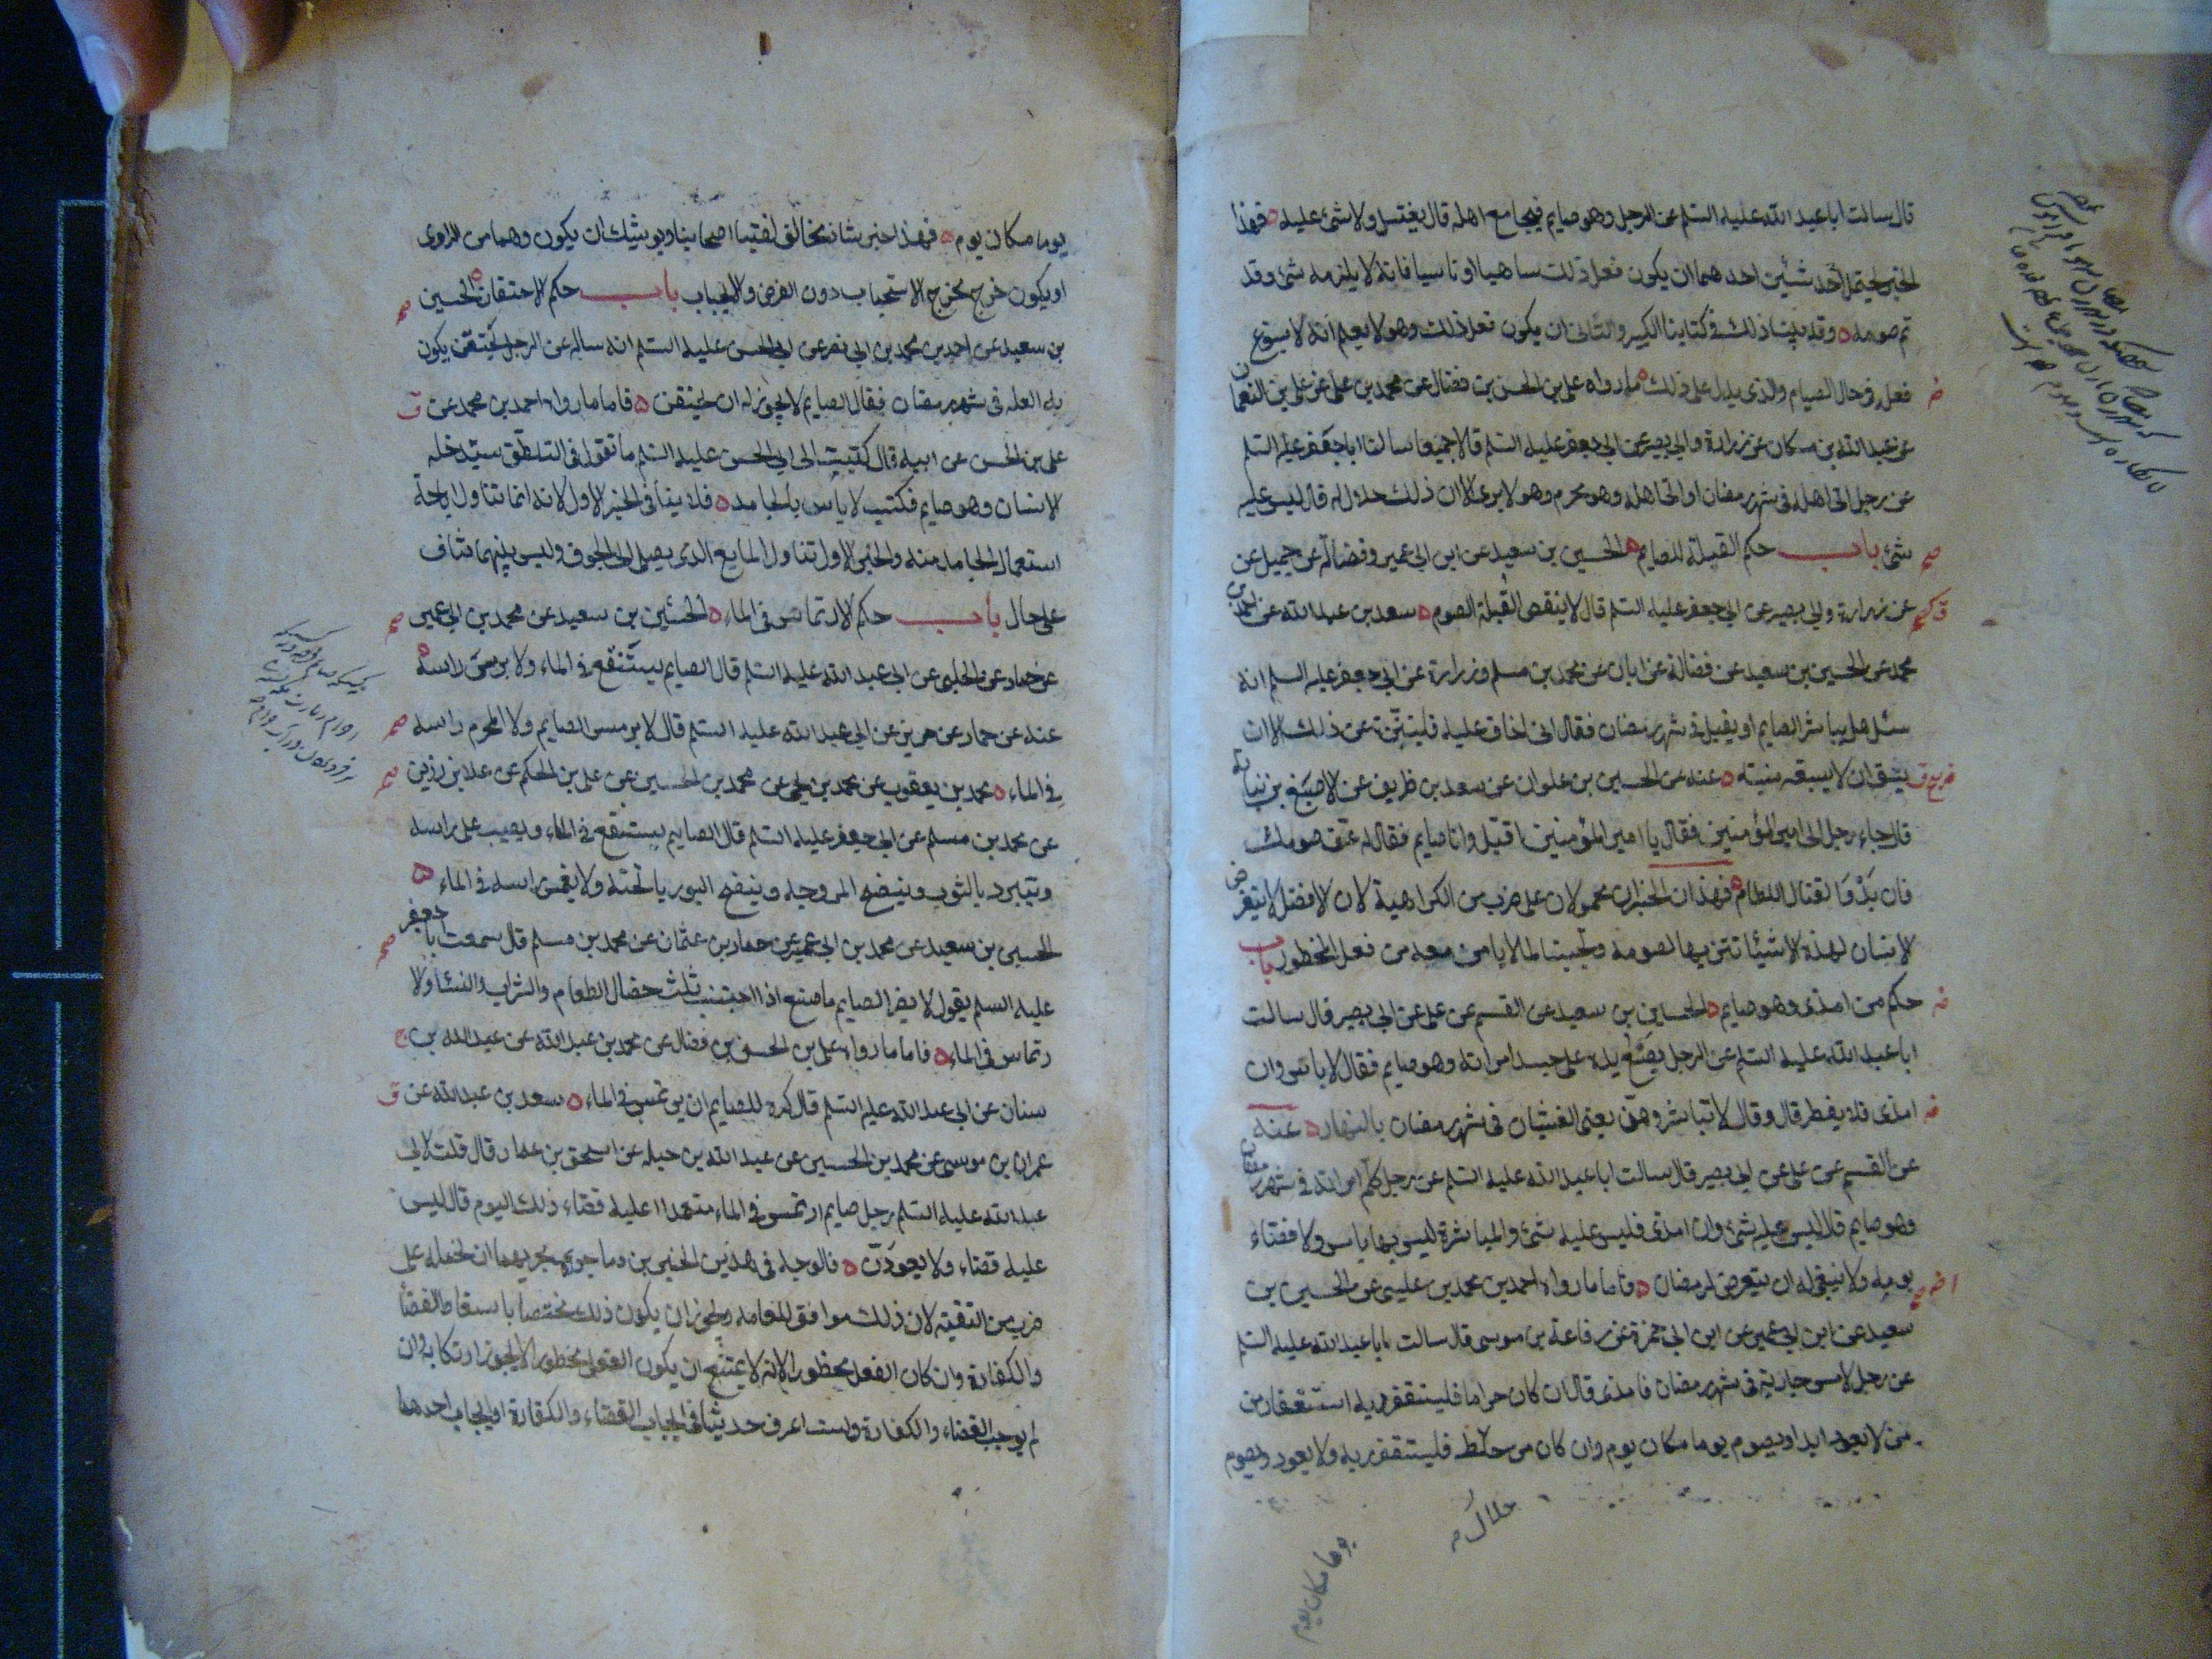 قال سالت ابا عبد الله عليه السلم عن الرجل وهو صايم فيجامع اهله قال يغتسل ولا شئ عليه ه فهذا
الخبر يحتمل احد شيئين احدهما ان يكون فعل ذلك ساهيا او ناسيا فانه لا يلزمه شئ وقد
تم صومه ه وقد بينا ذلك في كتابنا الكبير والثاني ان يكون فعل ذلك وهو لا يعلم انه لا يسوغ
فعله في حال الصيام والذي يدل على ذلك ه ما رواه علي بن الحسن بن فضال عن محمد بن علي عن علي بن النعمان
عن عبد الله بن مسكان عن زرارة وابي بصير عن ابي جعفر عليه السلم قالا جميعا سالنا ابا جعفر عليه السلم
عن رجل اتى اهله في شهر رمضان او اتى اهله وهو محرم وهو لا يرى الا ان ذلك حلال له قال ليس عليه
شئ باب حكم القبلة للصايم ه الحسين بن سعيد عن ابن ابي عمير وفضالة عن جميل عن
عن زرارة وابي بصير عن ابي جعفر عليه السلم قال لا ينقض القبلة الصوم ه سعد بن عبد الله عن احمد بن
محمد عن الحسين بن سعيد عن فضالة عن ابان عن محمد بن مسلم وزرارة عن ابي جعفر عليه السلم انه
سئل هل يباشر الصايم او يقبل في شهر رمضان فقال اني اخاف عليه فليتنزه عن ذلك الا ان
يثق ان لا يسبقه منيه ه عنه عن الحسين بن علوان عن سعد بن ظريف عن الاصبغ بن نباته
قال جاء رجل الى امير المؤمنين فقال يا امير المؤمنين اقبل وانا صايم فقال له عف صومك
فان بدو القتال اللطام ه فهذان الخبران محمولان على ضرب من الكراهية لان الافضل لا يتعرض
الانسان لهذه الاشيئا تنزيها لصومه وتجنبا لما لا يامن معه من فعل المحظور باب
حكم من امذى وهو صايم ه الحسين بن سعيد عن القسم عن علي عن ابي بصير قال سالت
ابا عبد الله عليه السلم عن الرجل يضع يده على جسد امراته وهو صايم فقال لا باس وان
امذى فلا يفطر قال وقال لا تباشروهن يعني الغشيان في شهر رمضان بالنهار ه عنه
عن القسم عن علي عن ابي بصير قال سالت ابا عبد الله عليه السلم عن رجل كلم امراته في شهر رمضان
وهو صايم قال ليس عليه شئ وان امذى فليس عليه شئ والمباشرة ليس بها باس ولا قضاء
يومه ولا ينبغي له ان يتعرض لرمضان ه فاما ما رواه احمد بن محمد بن عيسى عن الحسين بن
سعيد عن ابن ابي عمير عن ابن ابي حمزة عن رفاعة بن موسى قال سالت ابا عبد الله عليه السلم
عن رجل لامس جارية في شهر رمضان فامذى قال ان كان حراما فليستغفر ربه استغفار من
من لا يعود ابدا ويصوم يوما مكان يوم وان كان من حلال فليستغفر ربه ولا يعود ويصوم
حلال
يوما مكان يوم
يوما مكان يوم ه فهذا خبر شاذ مخالف لفتيا اصحابنا ويوشك ان يكون وهما من الراوي
او يكون خرج مخرج الاستحباب دون الفرض والايجاب باب حكم الاحتقان ه الحسين
بن سعيد عن احمد بن محمد بن ابي نصر عن ابي الحسن عليه السلم انه ساله عن الرجل يحتقن يكون
به العله في شهر رمضان فقال الصايم لا يجوز له ان يحتقن ه فاما ما رواه احمد بن محمد عن
علي بن الحسن عن ابيه قال كتبت الى ابي الحسن عليه السلم ما تقول في التلطف يستدخله
الانسان وهو صايم فكتب لا باس بالجامد ه فلا ينافي الخبر الاول لانه انما تناول اباحة
استعمال الجامد منه والخبر الاول تناول المايع الذي يصل الى الجوف وليس بينهما تناف
على حال باب حكم الارتماس في الماء ه الحسين بن سعيد عن محمد بن ابي عمير
عن حماد عن الحلبي عن ابي عبد الله عليه السلم قال الصايم يستنقع في الماء ولا يرمس راسه ه
عنه عن حماد عن حريز عن ابي عبد الله عليه السلم قال لا يرمس الصايم ولا المحرم راسه
في الماء ه محمد بن يعقوب عن محمد بن يحيى عن محمد بن الحسين عن علي بن الحكم عن علا بن رزين
عن محمد بن مسلم عن ابي جعفر عليه السلم قال الصايم يستنقع في الماء ويصب على راسه
ويتبرد بالثوب وينضح المروحه وينضح البوريا تحته ولا يغمس راسه في الماء ه
الحسين بن سعيد عن محمد بن ابي عمير عن حماد بن عثمان عن محمد بن مسلم قال سمعت ابا جعفر
عليه السلم يقول لا يضر الصايم ما صنع اذا اجتنب ثلث خصال الطعام والشراب والنساء والا
رتماس في الماء ه فاما ما رواه علي بن الحسن بن فضال عن محمد بن عبد الله عن عبد الله بن
سنان عن ابي عبد الله عليه السلم قال كره للصايم ان يرتمس في الماء ه سعد بن عبد الله عن
عمران بن موسى عن محمد بن الحسين عن عبد الله بن جبله عن اسحق بن عمار قال قلت لابي
عبد الله عليه السلم رجل صايم ارتمس في الماء متعمدا اعليه قضاء ذلك اليوم قال ليس
عليه قضاء ولا يعودن ه فالوجه في هذين الخبرين وما جرى مجريهما ان نحمله على
ضرب من التقيه لان ذلك موافق للعامه ويجوز ان يكون ذلك مختصا باسقاط القضا
والكفارة وان كان الفعل محظورا لانه لا يمتنع ان يكون الفعل محظورا لا يجوز ارتكابه وان
لم يوجب القضاء والكفارة ولست اعرف حديثا في ايجاب القضاء والكفارة او ايجاب احدهما